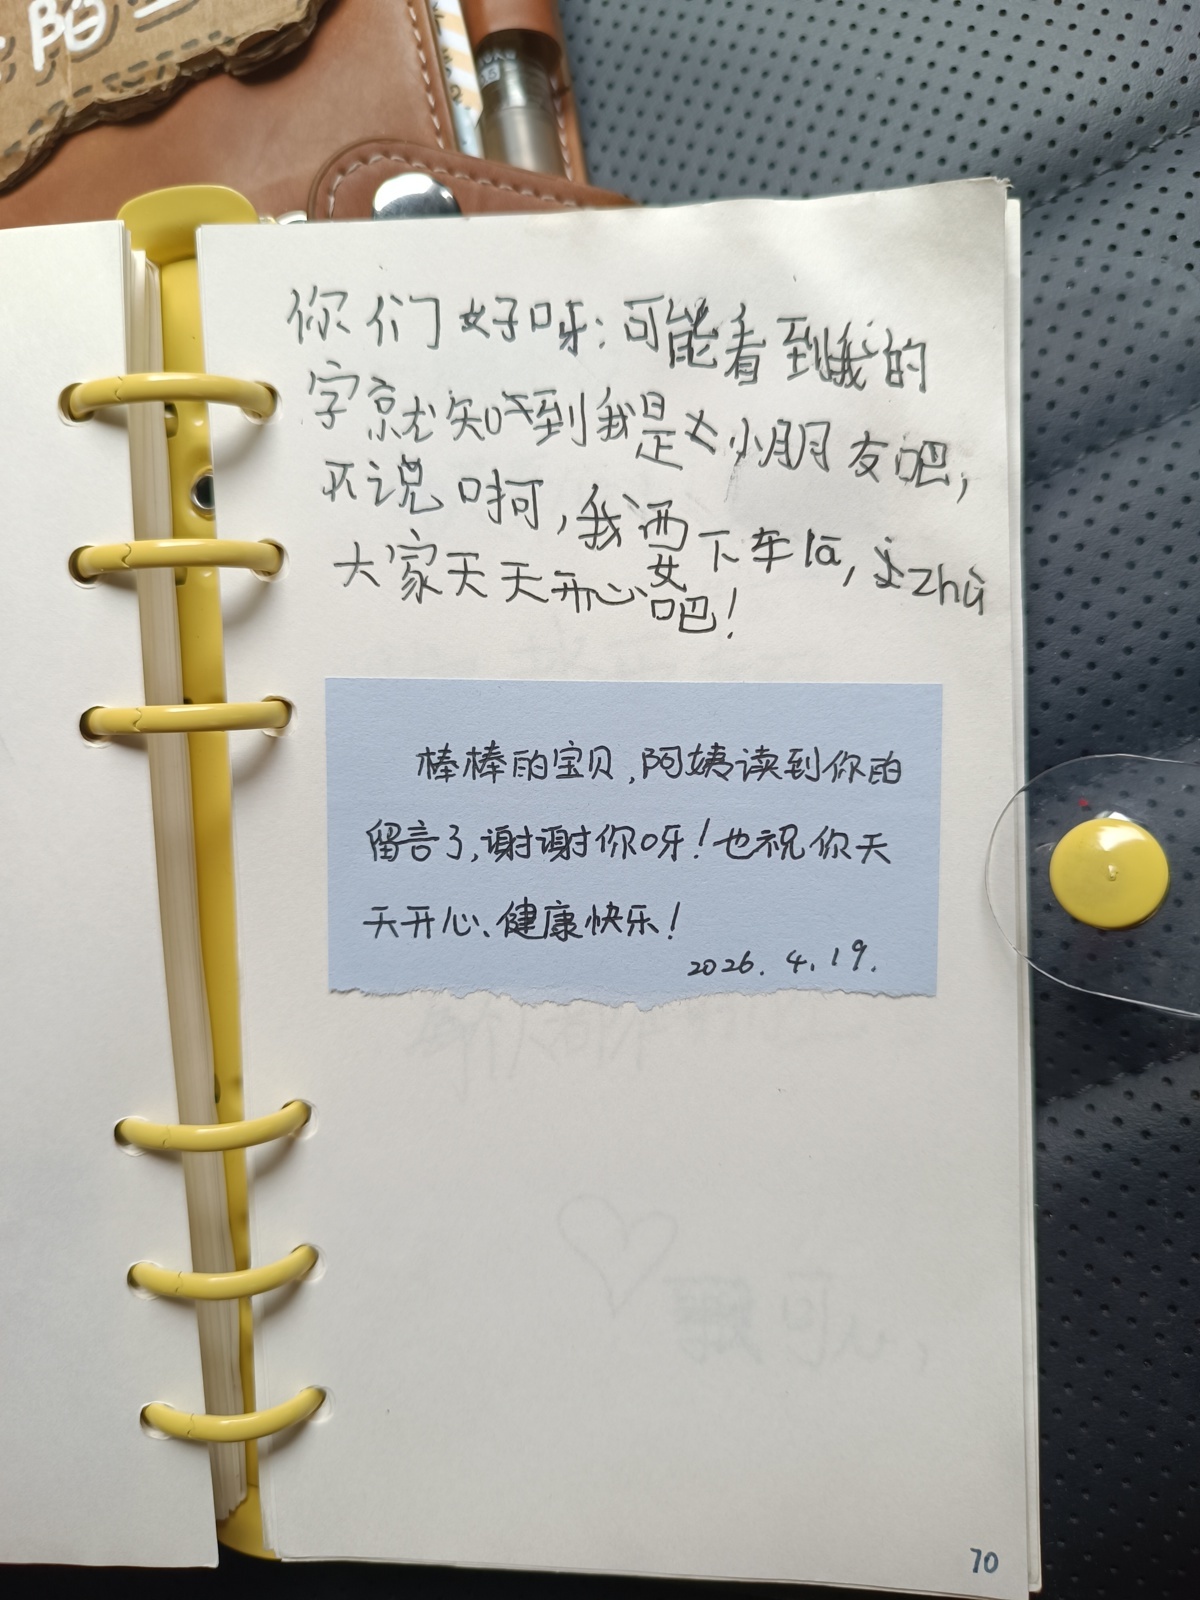 陌
你们好呀:可能看到我的
字就知到我是大小朋友吧,
不说呵,我要下车lā, zhù
大家天天开心吧!
棒棒的宝贝,阿姨读到你的
留言了,谢谢你呀!也祝你天
天开心、健康快乐!
2026.4.19.
70